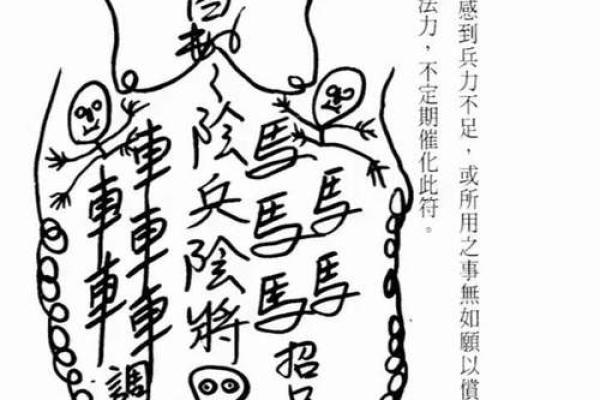 感到兵力不足，或所用之事無如願以償
法力，不定期催化此符。
馬馬
馬馬馬
招
陰兵陰將
車車車車
車車車
調